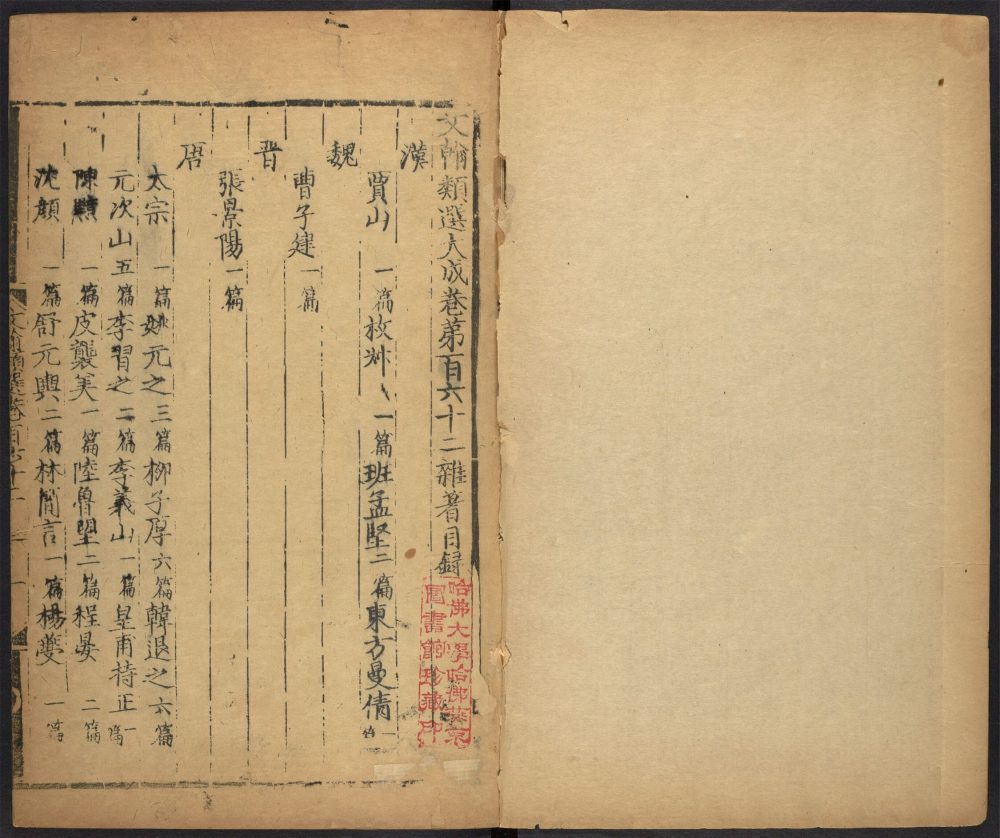 文翰類選大成卷第百六十二雜著目録
哈佛大學哈佛燕京
圖書館珍藏印
漢
賈山 一篇 枚叔 一篇 班孟堅 二篇 東方曼倩 一篇
魏
曹子建 一篇
晋
張景陽 一篇
唐
太宗 一篇 姚元之 三篇 柳子厚 六篇 韓退之 六篇
元次山 五篇 李習之 二篇 李義山 一篇 皇甫持正 一篇
陳黯 一篇 皮襲美 一篇 陸魯望 二篇 程晏 二篇
沈顔 一篇 舒元輿 二篇 林簡言 一篇 楊夔 一篇